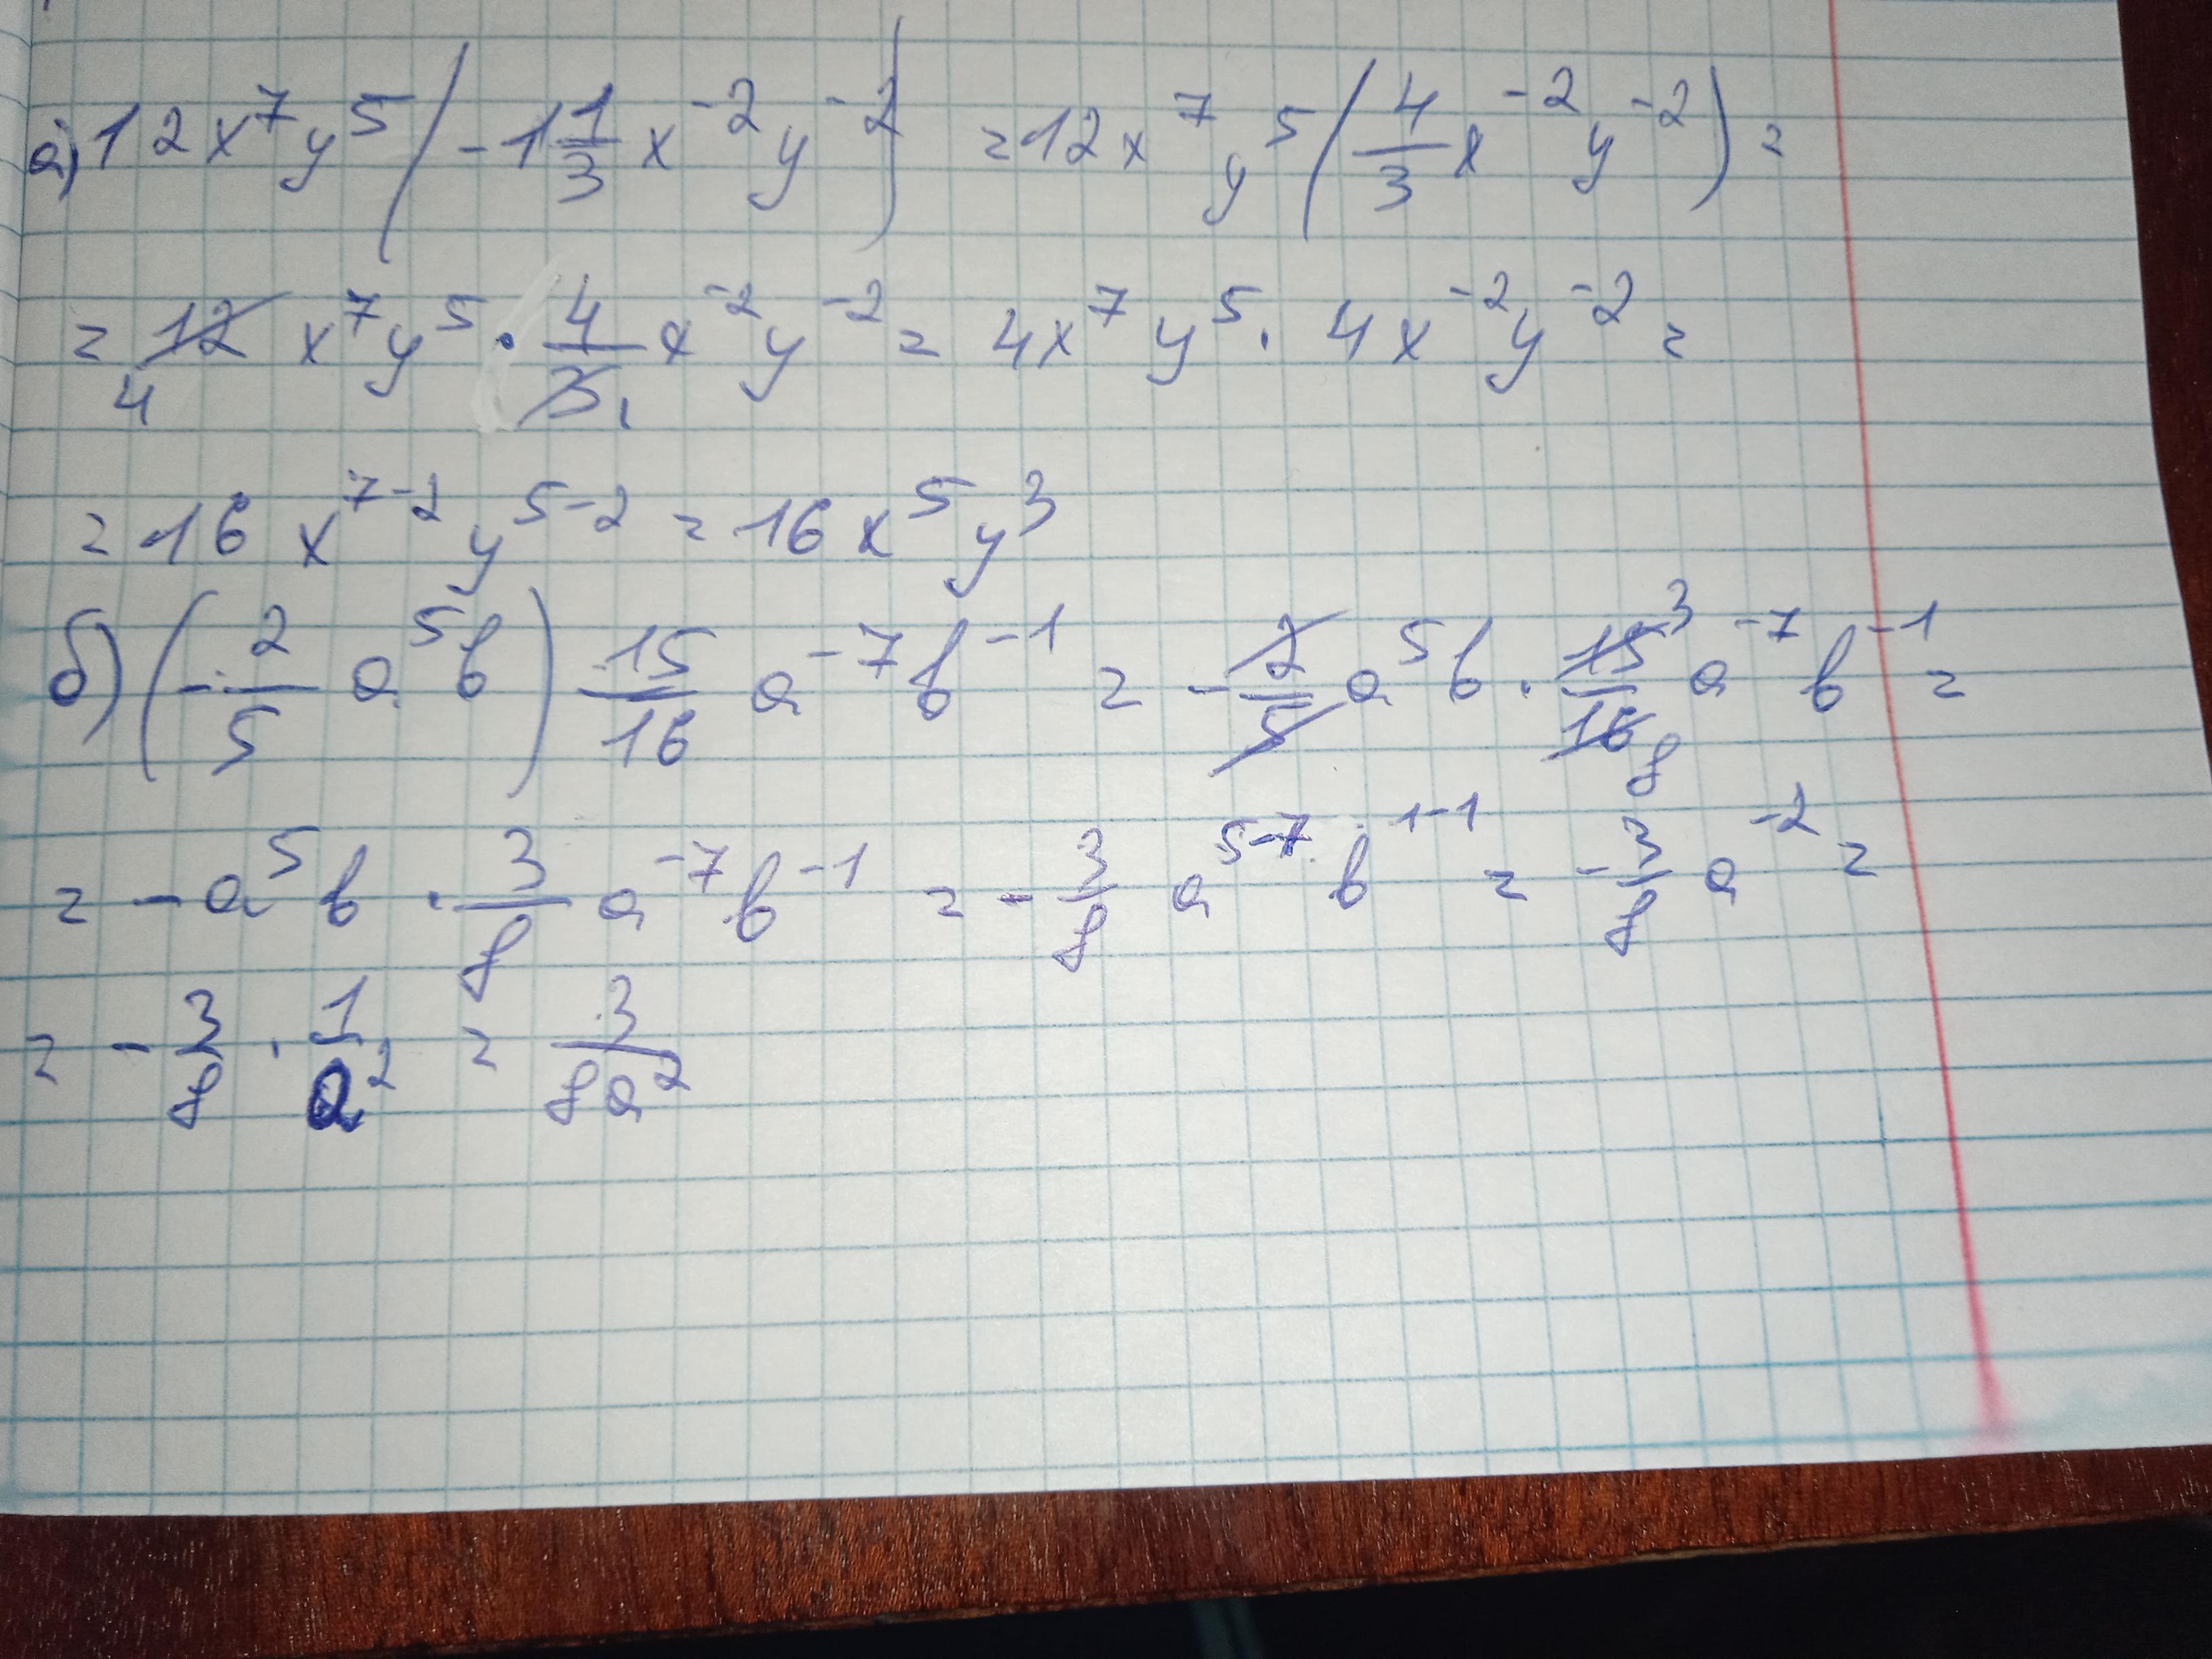 а) 12x⁷y⁵(-1 1/3 x⁻²y⁻²) = 12x⁷y⁵(4/3 x⁻²y⁻²) =
= 12 4 x⁷y⁵ · 4/3 1 x⁻²y⁻² = 4x⁷y⁵ · 4x⁻²y⁻² =
= 16x⁷⁻²y⁵⁻² = 16x⁵y³
б) (-2/5 a⁵b) 15/16 a⁻⁷b⁻¹ = -2/5 a⁵b · 15 3/16 8 a⁻⁷b⁻¹ =
= -a⁵b · 3/8 a⁻⁷b⁻¹ = -3/8 a⁵⁻⁷b¹⁻¹ = -3/8 a⁻² =
= -3/8 · 1/a² = 3/8a²